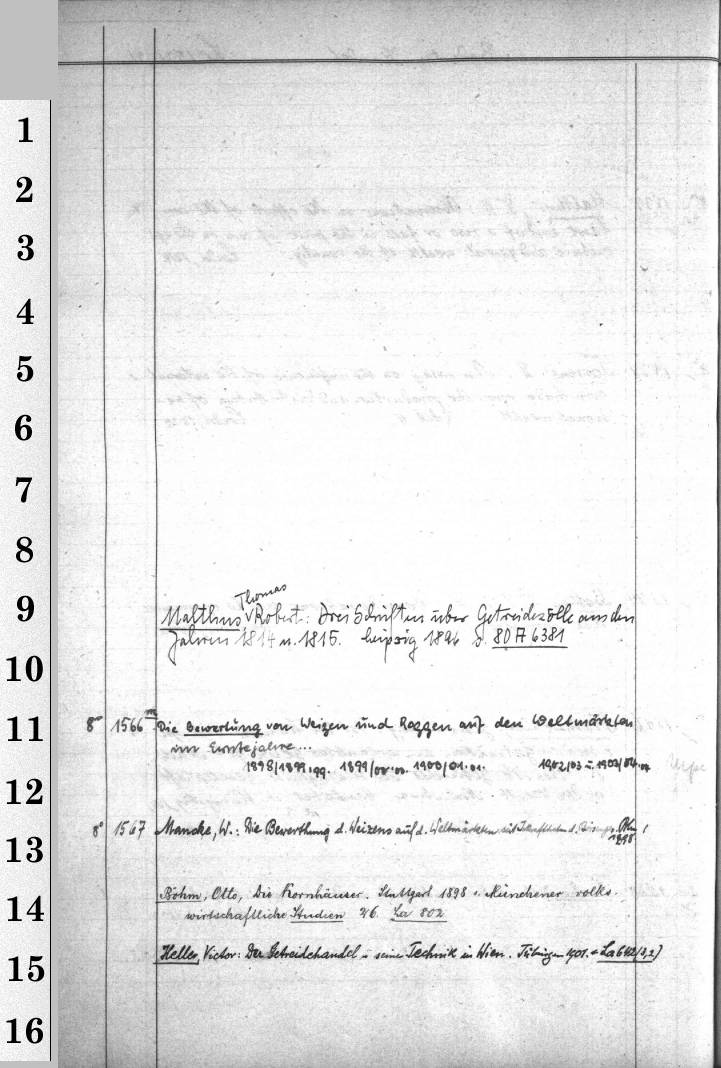 1
2
3
4
5
6
7
8
9
10
11
12
13
14
15
16
Thomas
Malthus Robert: Drei Schriften über Getreidezölle aus den
Jahren 1814 u. 1815. Leipzig 1896 s. 80 A 6381
8° 1566 m Die Bewertung von Weizen und Roggen auf den Weltmärkten
im Erntejahre...
1898/1899. 1899/00. 1900/01. 1902/03 u. 1903/04.
8° 1567 Mancke, W.: Die Bewerthung d. Weizens auf d. Weltmärkten seit
1898
Böhm, Otto, Die Kornhäuser. Stuttgart 1898 = Münchener volks-
wirtschaftliche Studien 26. La 802
Heller, Victor: Der Getreidehandel u. seine Technik in Wien. Tübingen 1901. = La 642/3,2)